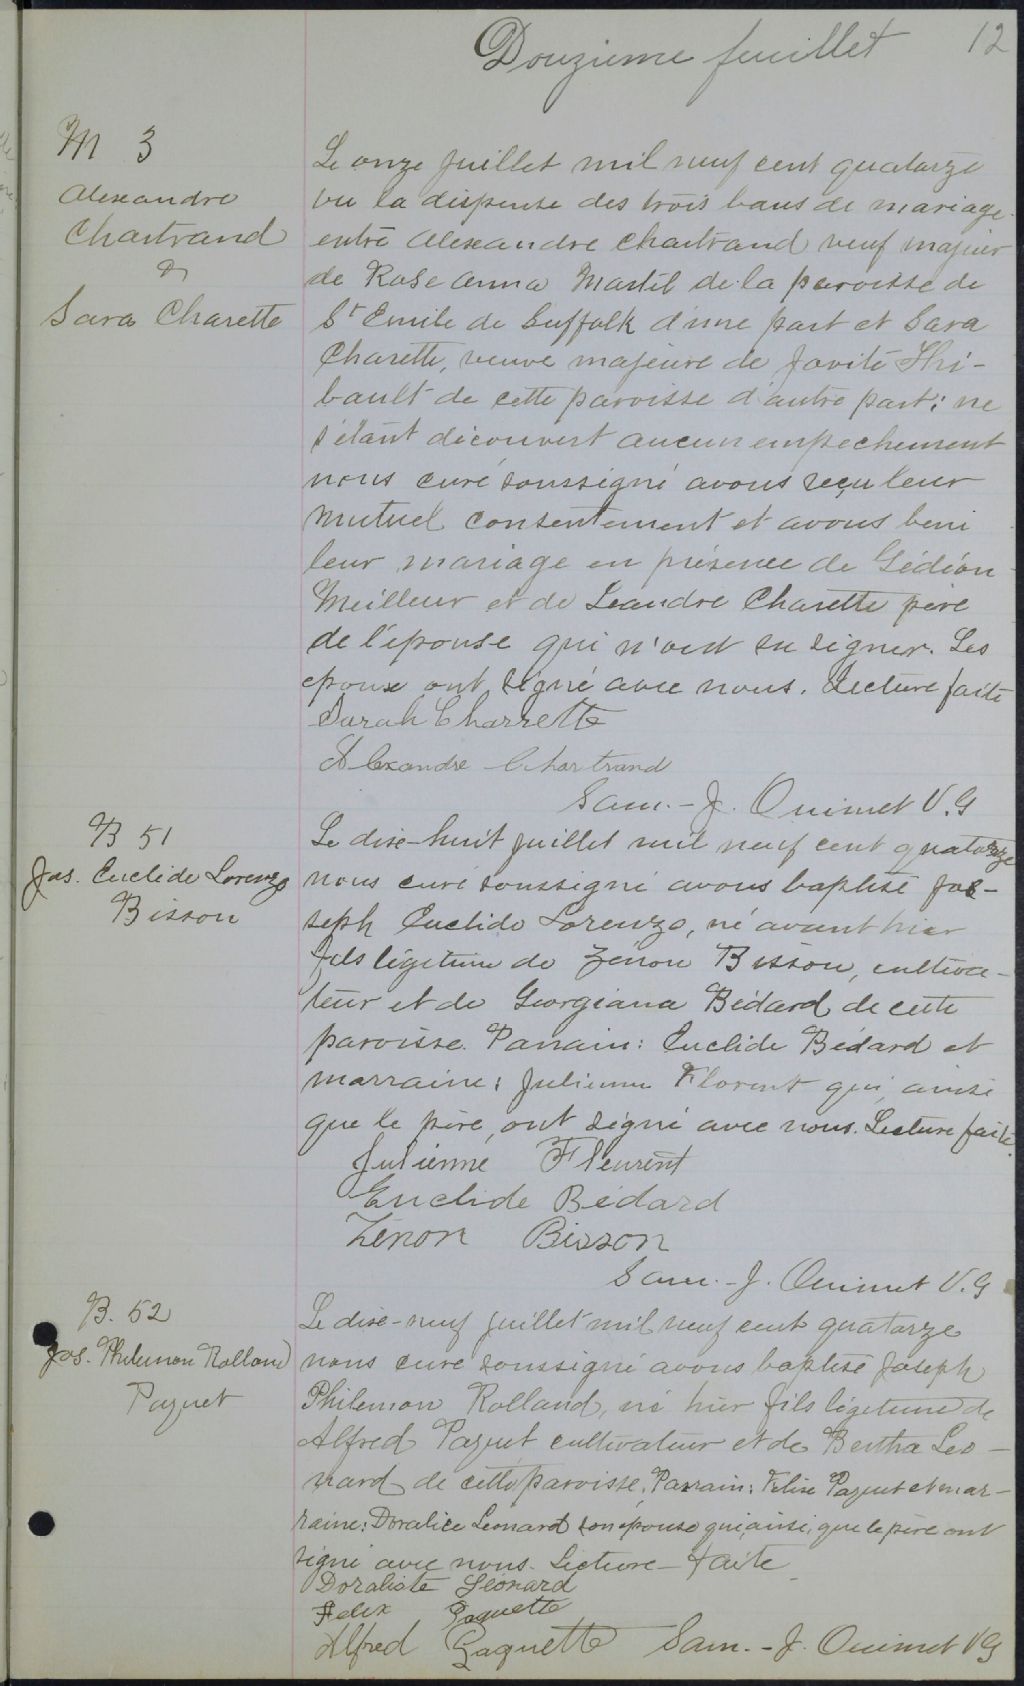 Douzieme feuillet 12
M 3
Alexandre
Chartrand
&
Sara Charette
Le onze juillet mil neuf cent quatorze
vu la dispense des trois bans de mariage
entre Alexandre Chartrand veuf majeur
de Rose Anna Martil de la paroisse de
St Emile de Suffolk d'une part et Sara
Charette, veuve majeure de Jovite Thi-
bault de cette paroisse d'autre part; ne
s'étant découvert aucun empechement
nous curé soussigné avons reçu leur
mutuel consentement et avons beni
leur mariage en présence de Gédéon
Meilleur et de Leandre Charette père
de l'épouse qui n'ont su signer. Les
epoux ont signé avec nous. Lecture faite
Sarah Charrette
Alexandre Chartrand
Sam.-J. Ouimet V.G
B 51
Jos. Euclide Lorenzo
Bisson
Le dix-huit juillet mil neuf cent quatorze
nous curé soussigné avons baptisé Jos-
seph Euclide Lorenzo, né avant hier
fils légitime de Zénon Bisson, cultiva-
teur et de Georgiana Bédard de cette
paroisse. Parrain: Euclide Bédard et
marraine: Julienne Florent qui, ainsi
que le père, ont signé avec nous. Lecture faite.
Julienne Fleurent
Euclide Bédard
Zénon Bisson
Sam.-J. Ouimet V.G
B. 52
Jos. Philemon Rolland
Paquet
Le dix-neuf juillet mil neuf cent quatorze
nous curé soussigné avons baptisé Joseph
Philemon Rolland, né hier fils légitime de
Alfred Paquet cultivateur et de Bertha Leo-
nard de cette paroisse. Parrain: Felix Paquet et mar-
raine: Doralice Leonard son épouse qui, ainsi, que le père ont
signé avec nous. Lecture faite
Doraliste Léonard
Felix Paquette
Alfred Paquette Sam.-J. Ouimet VG